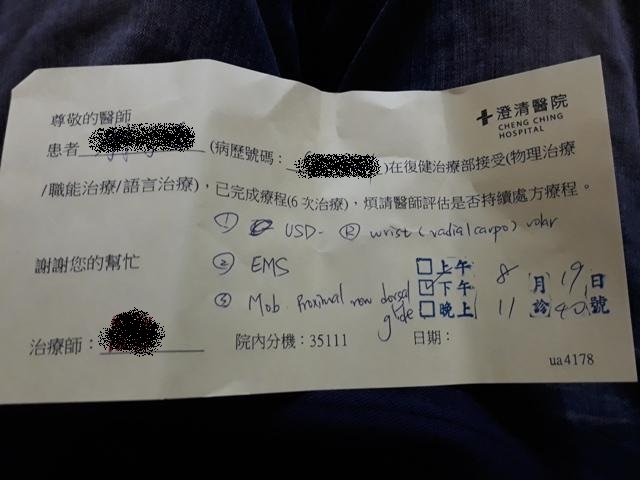 澄清醫院
CHENG CHING
HOSPITAL
尊敬的醫師
患者 (病歷號碼： )在復健治療部接受(物理治療
/職能治療/語言治療)，已完成療程(6 次治療)，煩請醫師評估是否持續處方療程。
① USD- Ⓡ wrist (radialcarpo) volar
謝謝您的幫忙
② EMS
③ Mob. Proximal row dorsal
glide
上午 8 月 19 日
下午
晚上 11 診 40 號
治療師： 院內分機：35111 日期：
ua4178